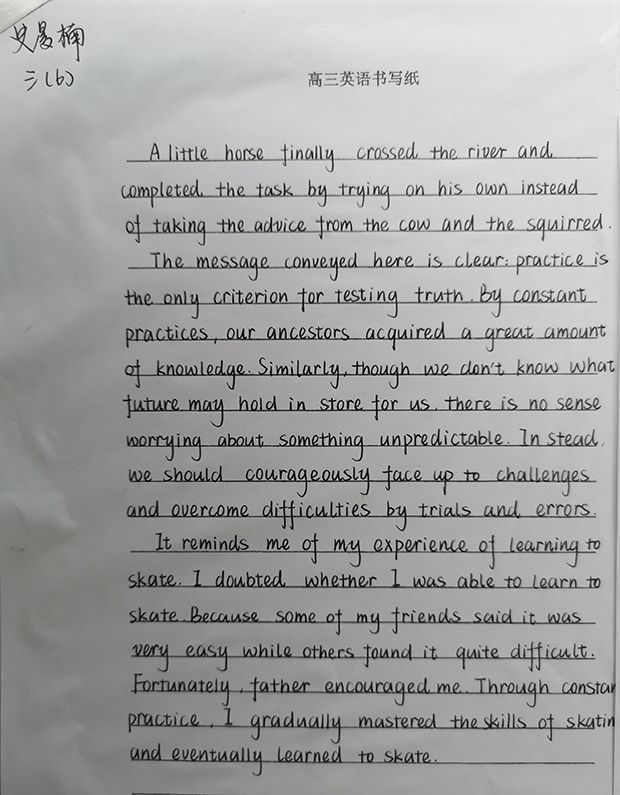 史晨楠
三(6)
高三英语书写纸
A little horse finally crossed the river and
completed the task by trying on his own instead
of taking the advice from the cow and the squirred.
The message conveyed here is clear: practice is
the only criterion for testing truth. By constant
practices, our ancestors acquired a great amount
of knowledge. Similarly, though we don't know what
future may hold in store for us, there is no sense
worrying about something unpredictable. In stead,
we should courageously face up to challenges
and overcome difficulties by trials and errors.
It reminds me of my experience of learning to
skate. I doubted whether I was able to learn to
skate. Because some of my friends said it was
very easy while others found it quite difficult.
Fortunately, father encouraged me. Through constan
practice, I gradually mastered the skills of skatin
and eventually learned to skate.